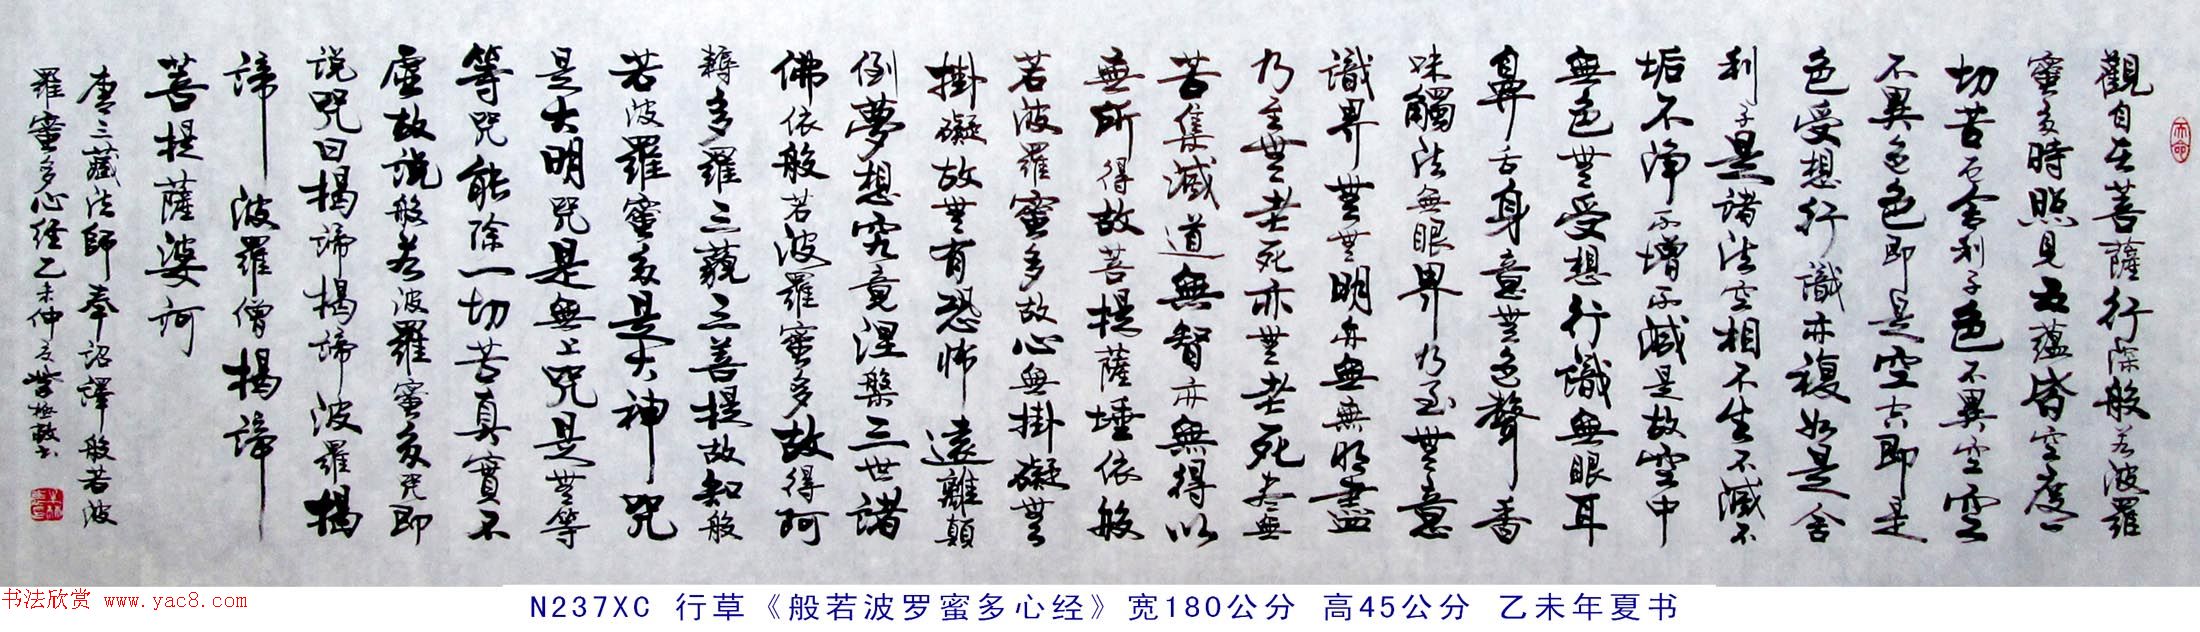 觀自在菩薩行深般若波羅
蜜多時照見五蘊皆空度一
切苦厄舍利子色不異空空
不異色色即是空空即是
色受想行識亦複如是舍
利子是諸法空相不生不滅不
垢不淨不增不減是故空中
無色無受想行識無眼耳
鼻舌身意無色聲香
味觸法無眼界乃至無意
識界無無明亦無無明盡
乃至無老死亦無老死盡無
苦集滅道無智亦無得以
無所得故菩提薩埵依般
若波羅蜜多故心無掛礙無
掛礙故無有恐怖遠離顛
倒夢想究竟涅槃三世諸
佛依般若波羅蜜多故得阿
耨多羅三藐三菩提故知般
若波羅蜜多是大神咒
是大明咒是無上咒是無等
等咒能除一切苦真實不
虛故說般若波羅蜜多咒即
說咒曰揭諦揭諦波羅揭
諦波羅僧揭諦
菩提薩婆訶
唐三藏法師奉詔譯般若波
羅蜜多心經乙未仲夏
书法欣赏 www.yac8.com
N237XC 行草《般若波罗蜜多心经》宽180公分 高45公分 乙未年夏书